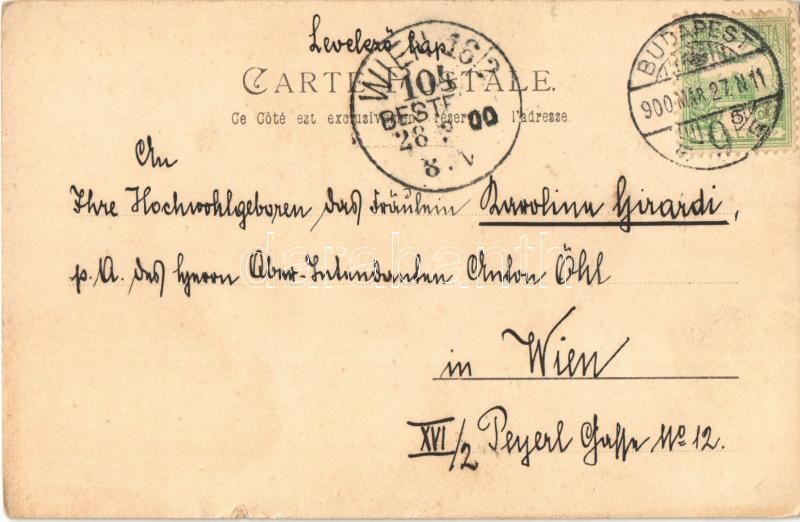 Levelező lap
WIEN 16/2
104
BESTELLT
28. 3. 00
8. V
BUDAPEST
900 MÁR. 27. N 11
CARTE POSTALE.
Ce Côté est exclusivement réservé à l'adresse.
An
Ihre Hochwohlgeboren das Fräulein Karolina Girardi,
p. A. des Herrn Ober-Intendanten Anton Öhl
darabanth.com
in Wien
XVI/2 Peyerl Gasse No 12.